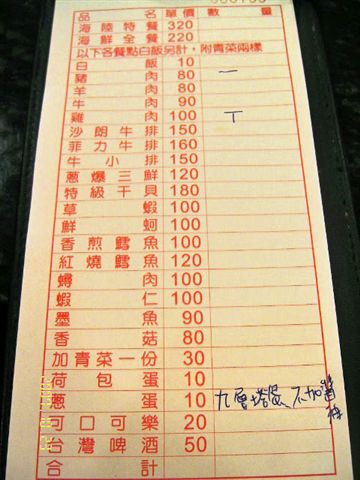 品名 單價 數量
海陸特餐 320
海鮮全餐 220
以下各餐點白飯另計，附青菜兩樣
白飯 10
豬肉 80 一
羊肉 80
牛肉 90
雞肉 100 T
沙朗牛排 150
菲力牛排 160
牛小排 150
蔥爆三鮮 120
特級干貝 180
草蝦 100
鮮蚵 100
香煎鱈魚 100
紅燒鱈魚 120
蟳肉 100
蝦仁 100
墨魚 90
香菇 80
加青菜一份 30
荷包蛋 10
蔥蛋 10 九層塔蛋、不加醬
可口可樂 20
台灣啤酒 50
合計